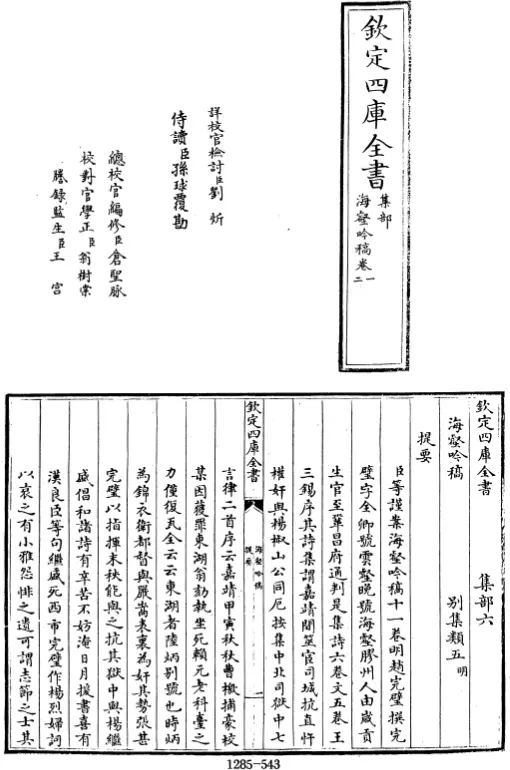 欽定四庫全書
集部
海壑吟稿卷一二
詳校官檢討臣劉炘
侍讀臣孫球覆勘
總校官編修臣倉聖脉
校對官學正臣翁樹棠
謄錄監生臣王宮
欽定四庫全書 集部六
海壑吟稿 別集類五 明
提要
臣等謹案海壑吟稿十一卷明趙完璧撰完
璧字全卿號雲壑晚號海壑膠州人由歲貢
生官至鞏昌府通判是集詩六卷文五卷王
三錫序其詩集謂嘉靖間筮官司城抗直忤
權奸與楊椒山公同厄按集中北司獄中七
欽定四庫全書
海壑吟稿
提要
一
言律二首序云嘉靖甲寅秋秋曹檄捕豪校
某因獲罪東湖翁劾執坐死賴元老科臺之
力僅復瓦全云云東湖者陸炳別號也時炳
為錦衣衛都督與嚴嵩表裏為奸其勢張甚
完璧以指揮末秩能與之抗其獄中與楊繼
盛倡和諸詩有辛苦不妨淹日月援書喜有
漢良臣等句繼盛死西市完璧作楊烈婦詞
以哀之有小雅怨悱之遺可謂志節之士其
1285-543